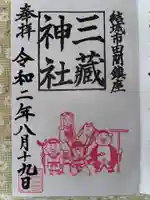 結城市田間鎮座
三藏
神社
奉拝
令和二年八月十九日